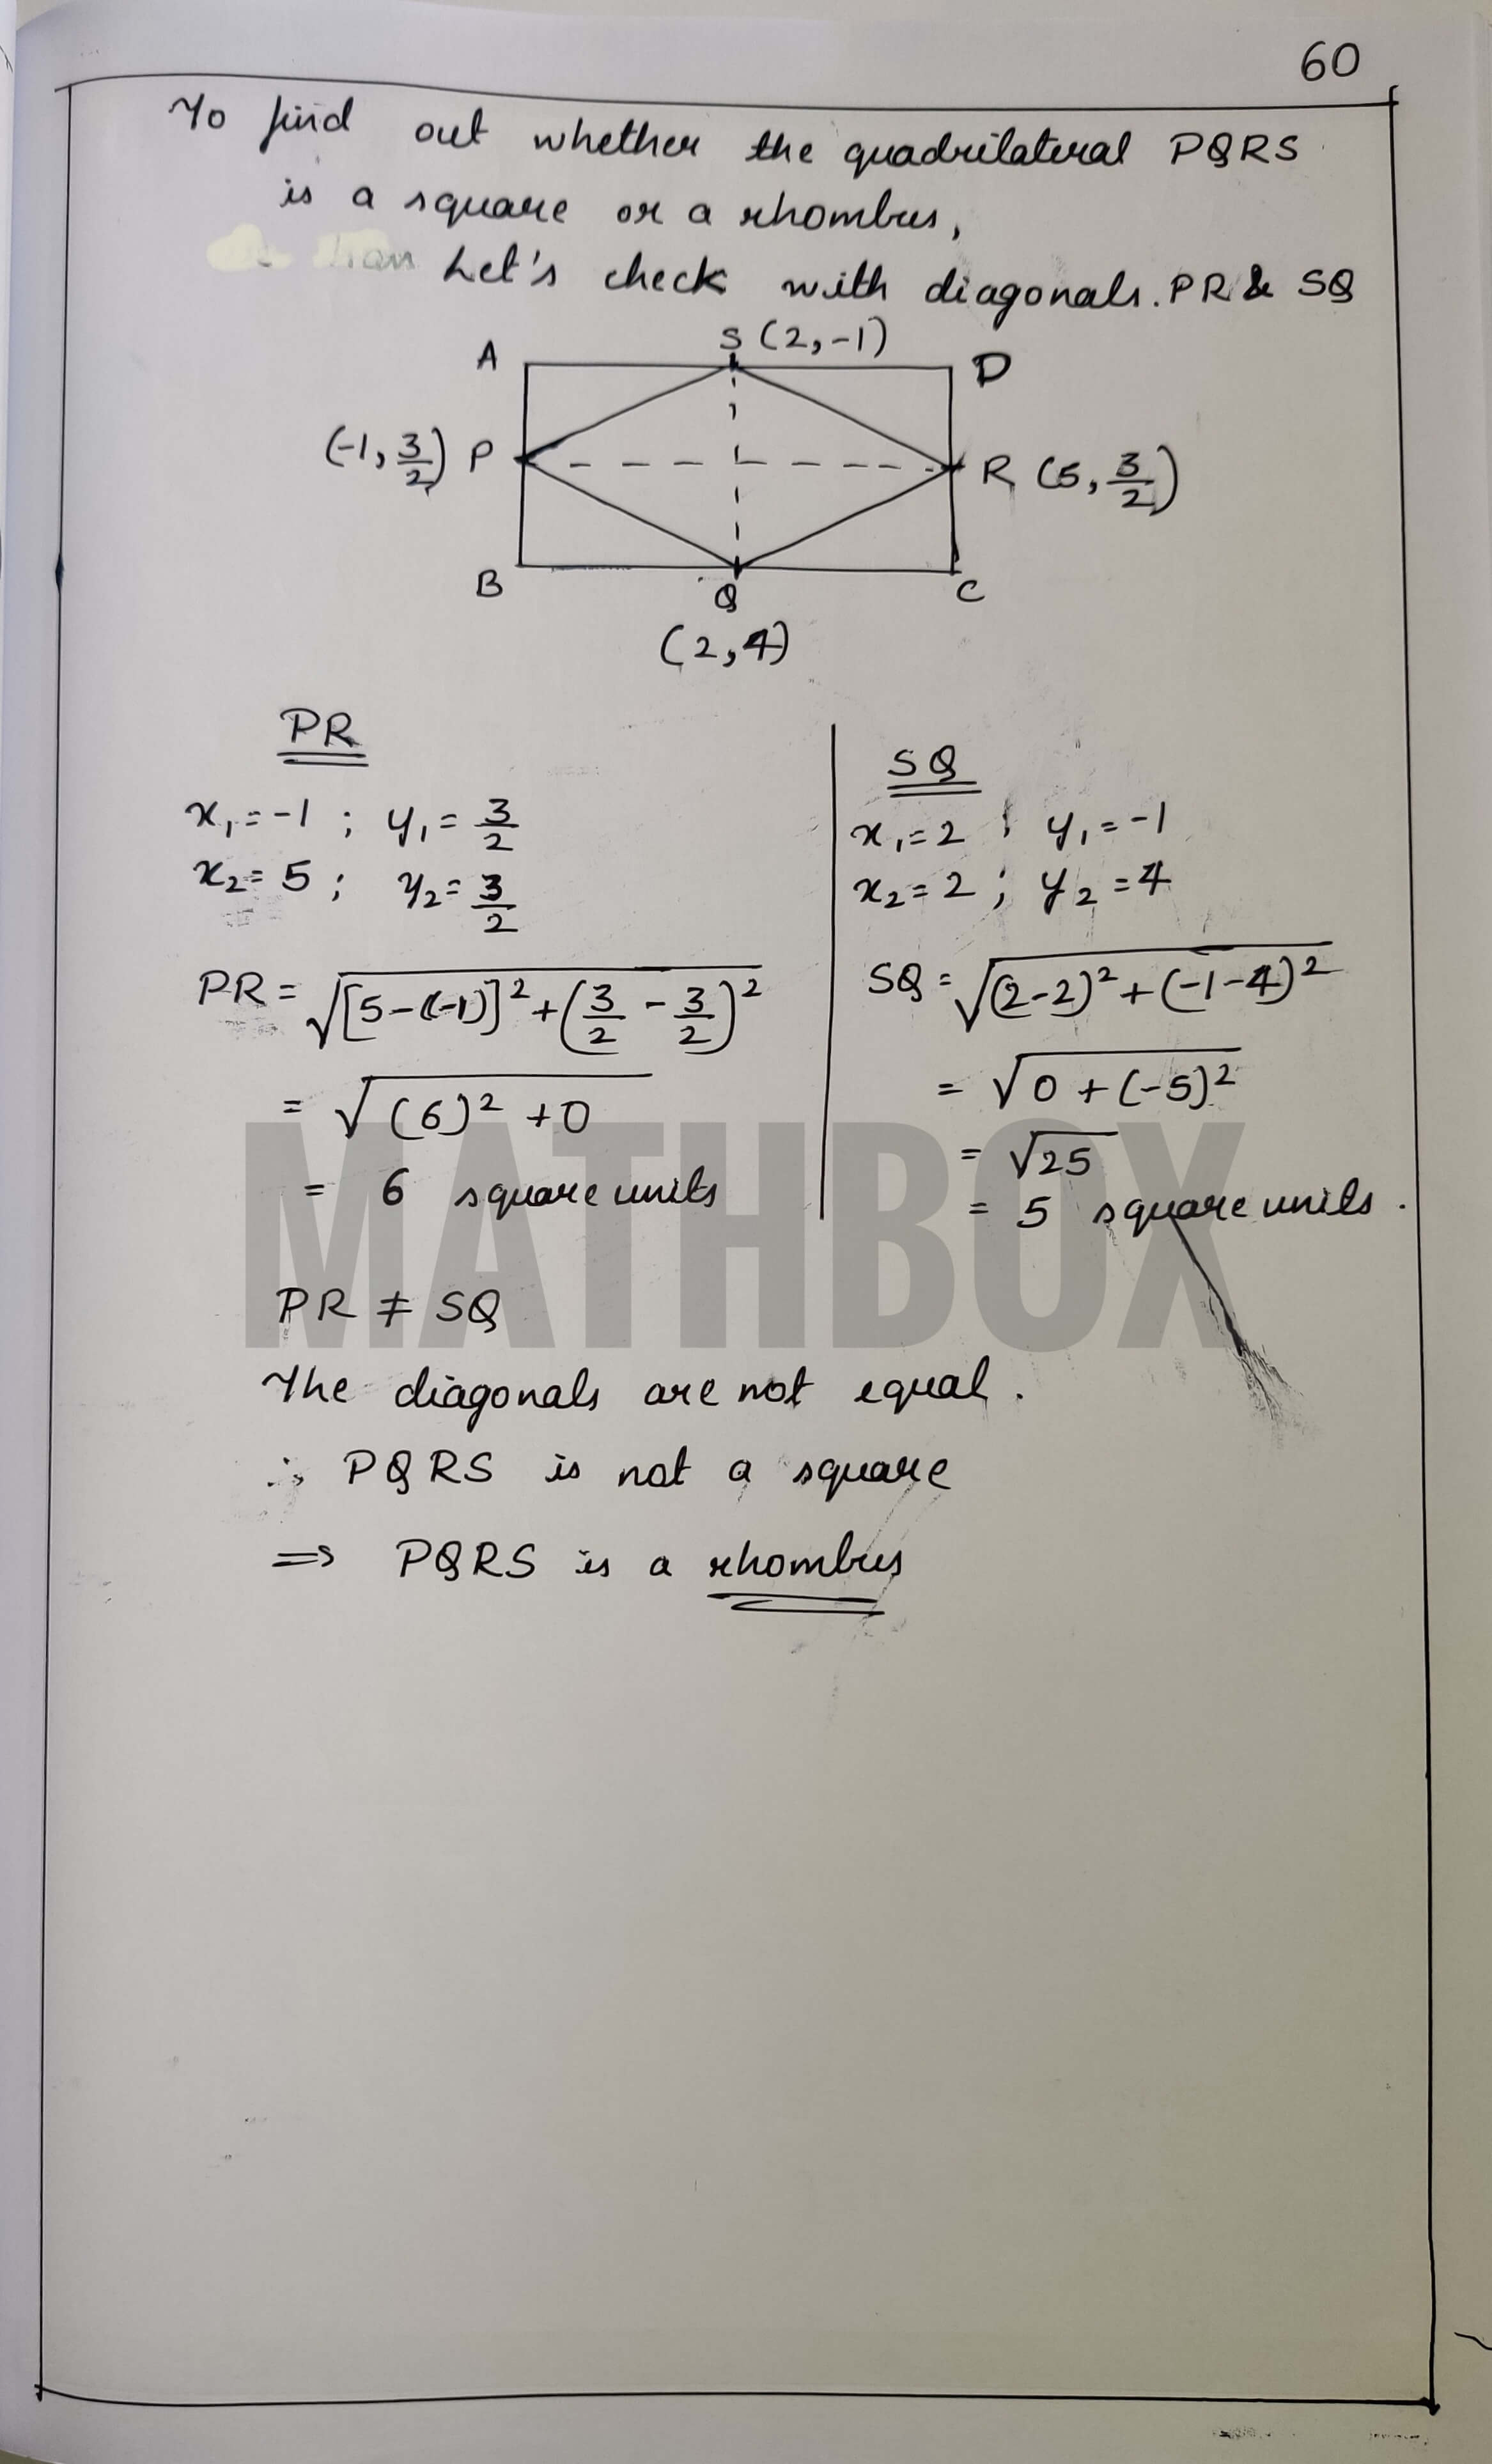 60
To find out whether the quadrilateral PQRS
is a square or a rhombus,
Let's check with diagonals. PR & SQ
S (2, -1)
A
D
(-1, 3/2) P
R (5, 3/2)
B
Q
C
(2, 4)
PR
x₁ = -1 ; y₁ = 3/2
x₂ = 5 ; y₂ = 3/2
PR = √([5-(-1)]² + (3/2 - 3/2)²)
= √((6)² + 0)
= 6 square units
SQ
x₁ = 2 ; y₁ = -1
x₂ = 2 ; y₂ = 4
SQ = √((2-2)² + (-1-4)²)
= √(0 + (-5)²)
= √25
= 5 square units.
MATHBOX
PR ≠ SQ
The diagonals are not equal.
∴ PQRS is not a square
⇒ PQRS is a rhombus